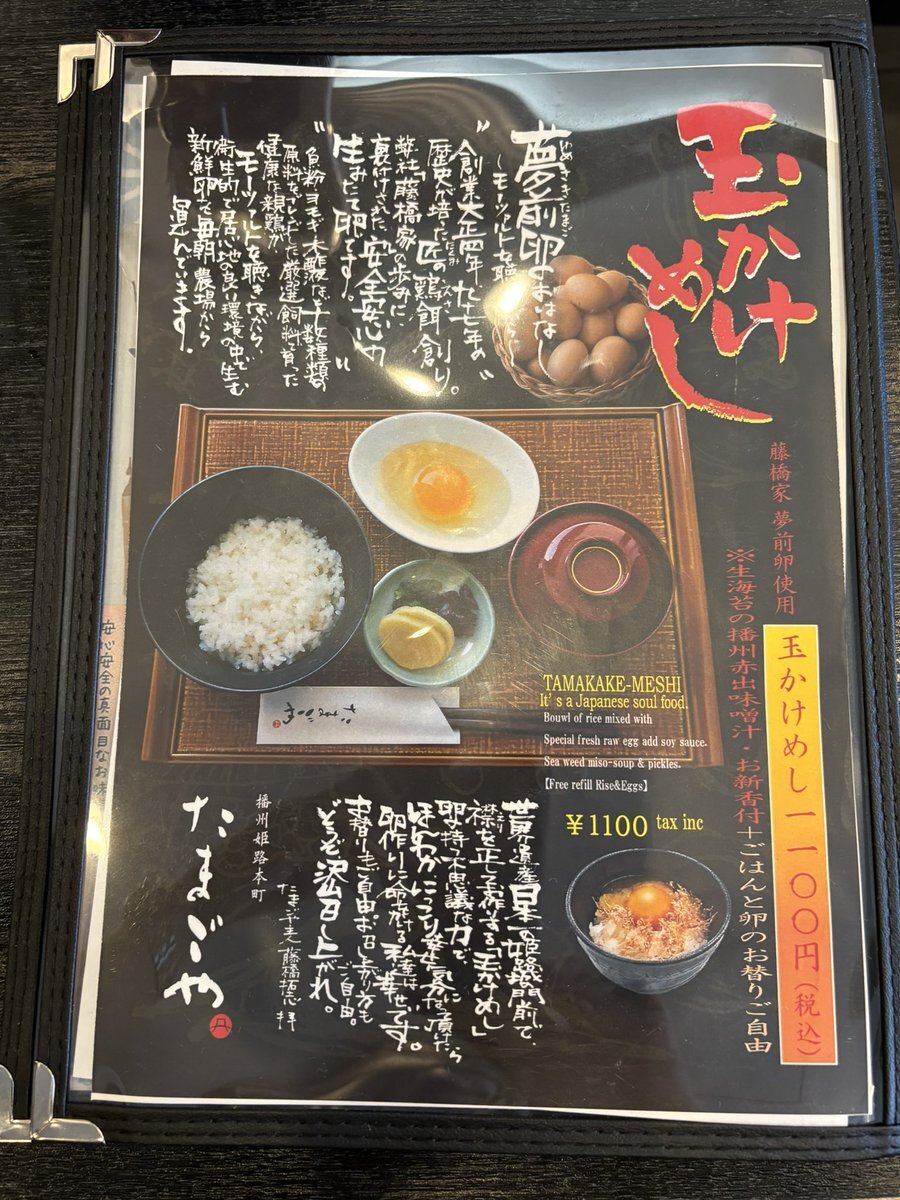 玉かけ
めし
藤橋家 夢前卵使用
玉かけめし 一一〇〇円(税込)
※生海苔の播州赤出味噌汁・お新香付+ごはんと卵のお替りご自由
夢前卵のおはなし
〜モーツァルトを聴きながら〜
"創業大正四年、九十七年の
歴史が培った匠の鶏餌創り。"
弊社「藤橋家」の歩みに
裏付けされた「安全安心力」
生みたて卵です。"
"魚粉、ヨモギ、木酢液など十数種類の
原料をブレンドした厳選飼料で育った
健康な親鶏が
モーツァルトを聴きながら、
衛生的で居心地の良い環境の中で生む
新鮮卵を毎朝、農場から
運んでいます。
TAMAKAKE-MESHI
It's a Japanese soul food.
Bouwl of rice mixed with
Special fresh raw egg add soy sauce.
Sea weed miso-soup & pickles.
【Free refill Rise&Eggs】
¥1100 tax inc
世界遺産 日本一の姫路城門前で、
襟を正しお作りする「玉かけめし」
卵の持つ不思議な力で、
ほんわかにっこり笑顔になって頂けたら
卵作りに命を懸ける私達は幸せです。
お替りもご自由、お召し上がり方もご自由。
どうぞ沢山召し上がれ。
たまごや主人 藤橋拓志 拝
播州姫路本町
たまごや
安心安全の真面目なお味